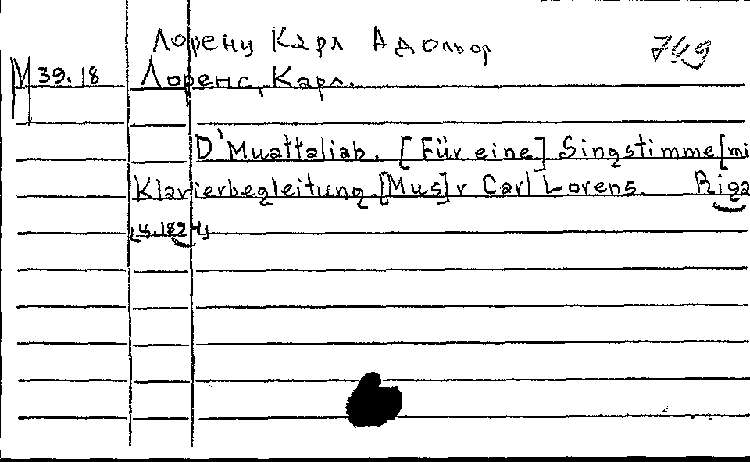 Лоренц Карл Адольф 749
M 39.18 Лоренс, Карл.
D'Muattaliab. [Für eine] Singstimme [mi
Klavierbegleitung. [Mus] v Carl Lorens. Riga